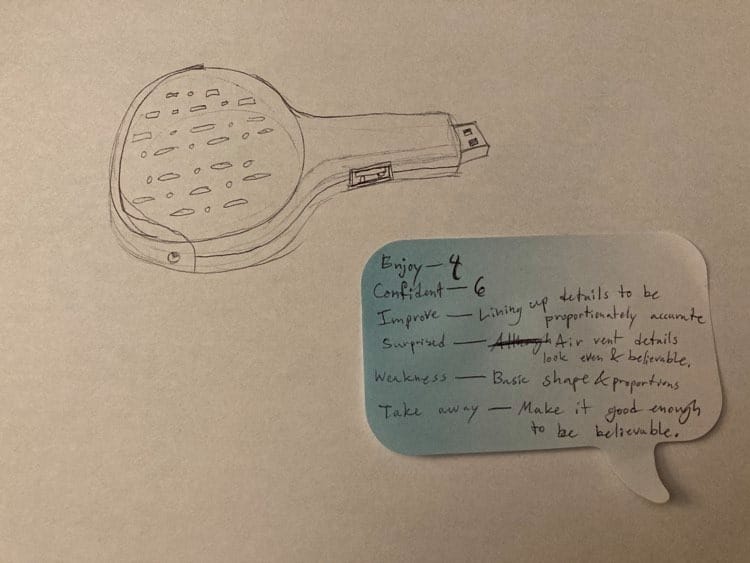 Enjoy — 4
Confident — 6
Improve — Lining up details to be
proportionately accurate
Surprised — Although Air vent details
look even & believable.
Weakness — Basic shape & proportions
Take away — Make it good enough
to be believable.